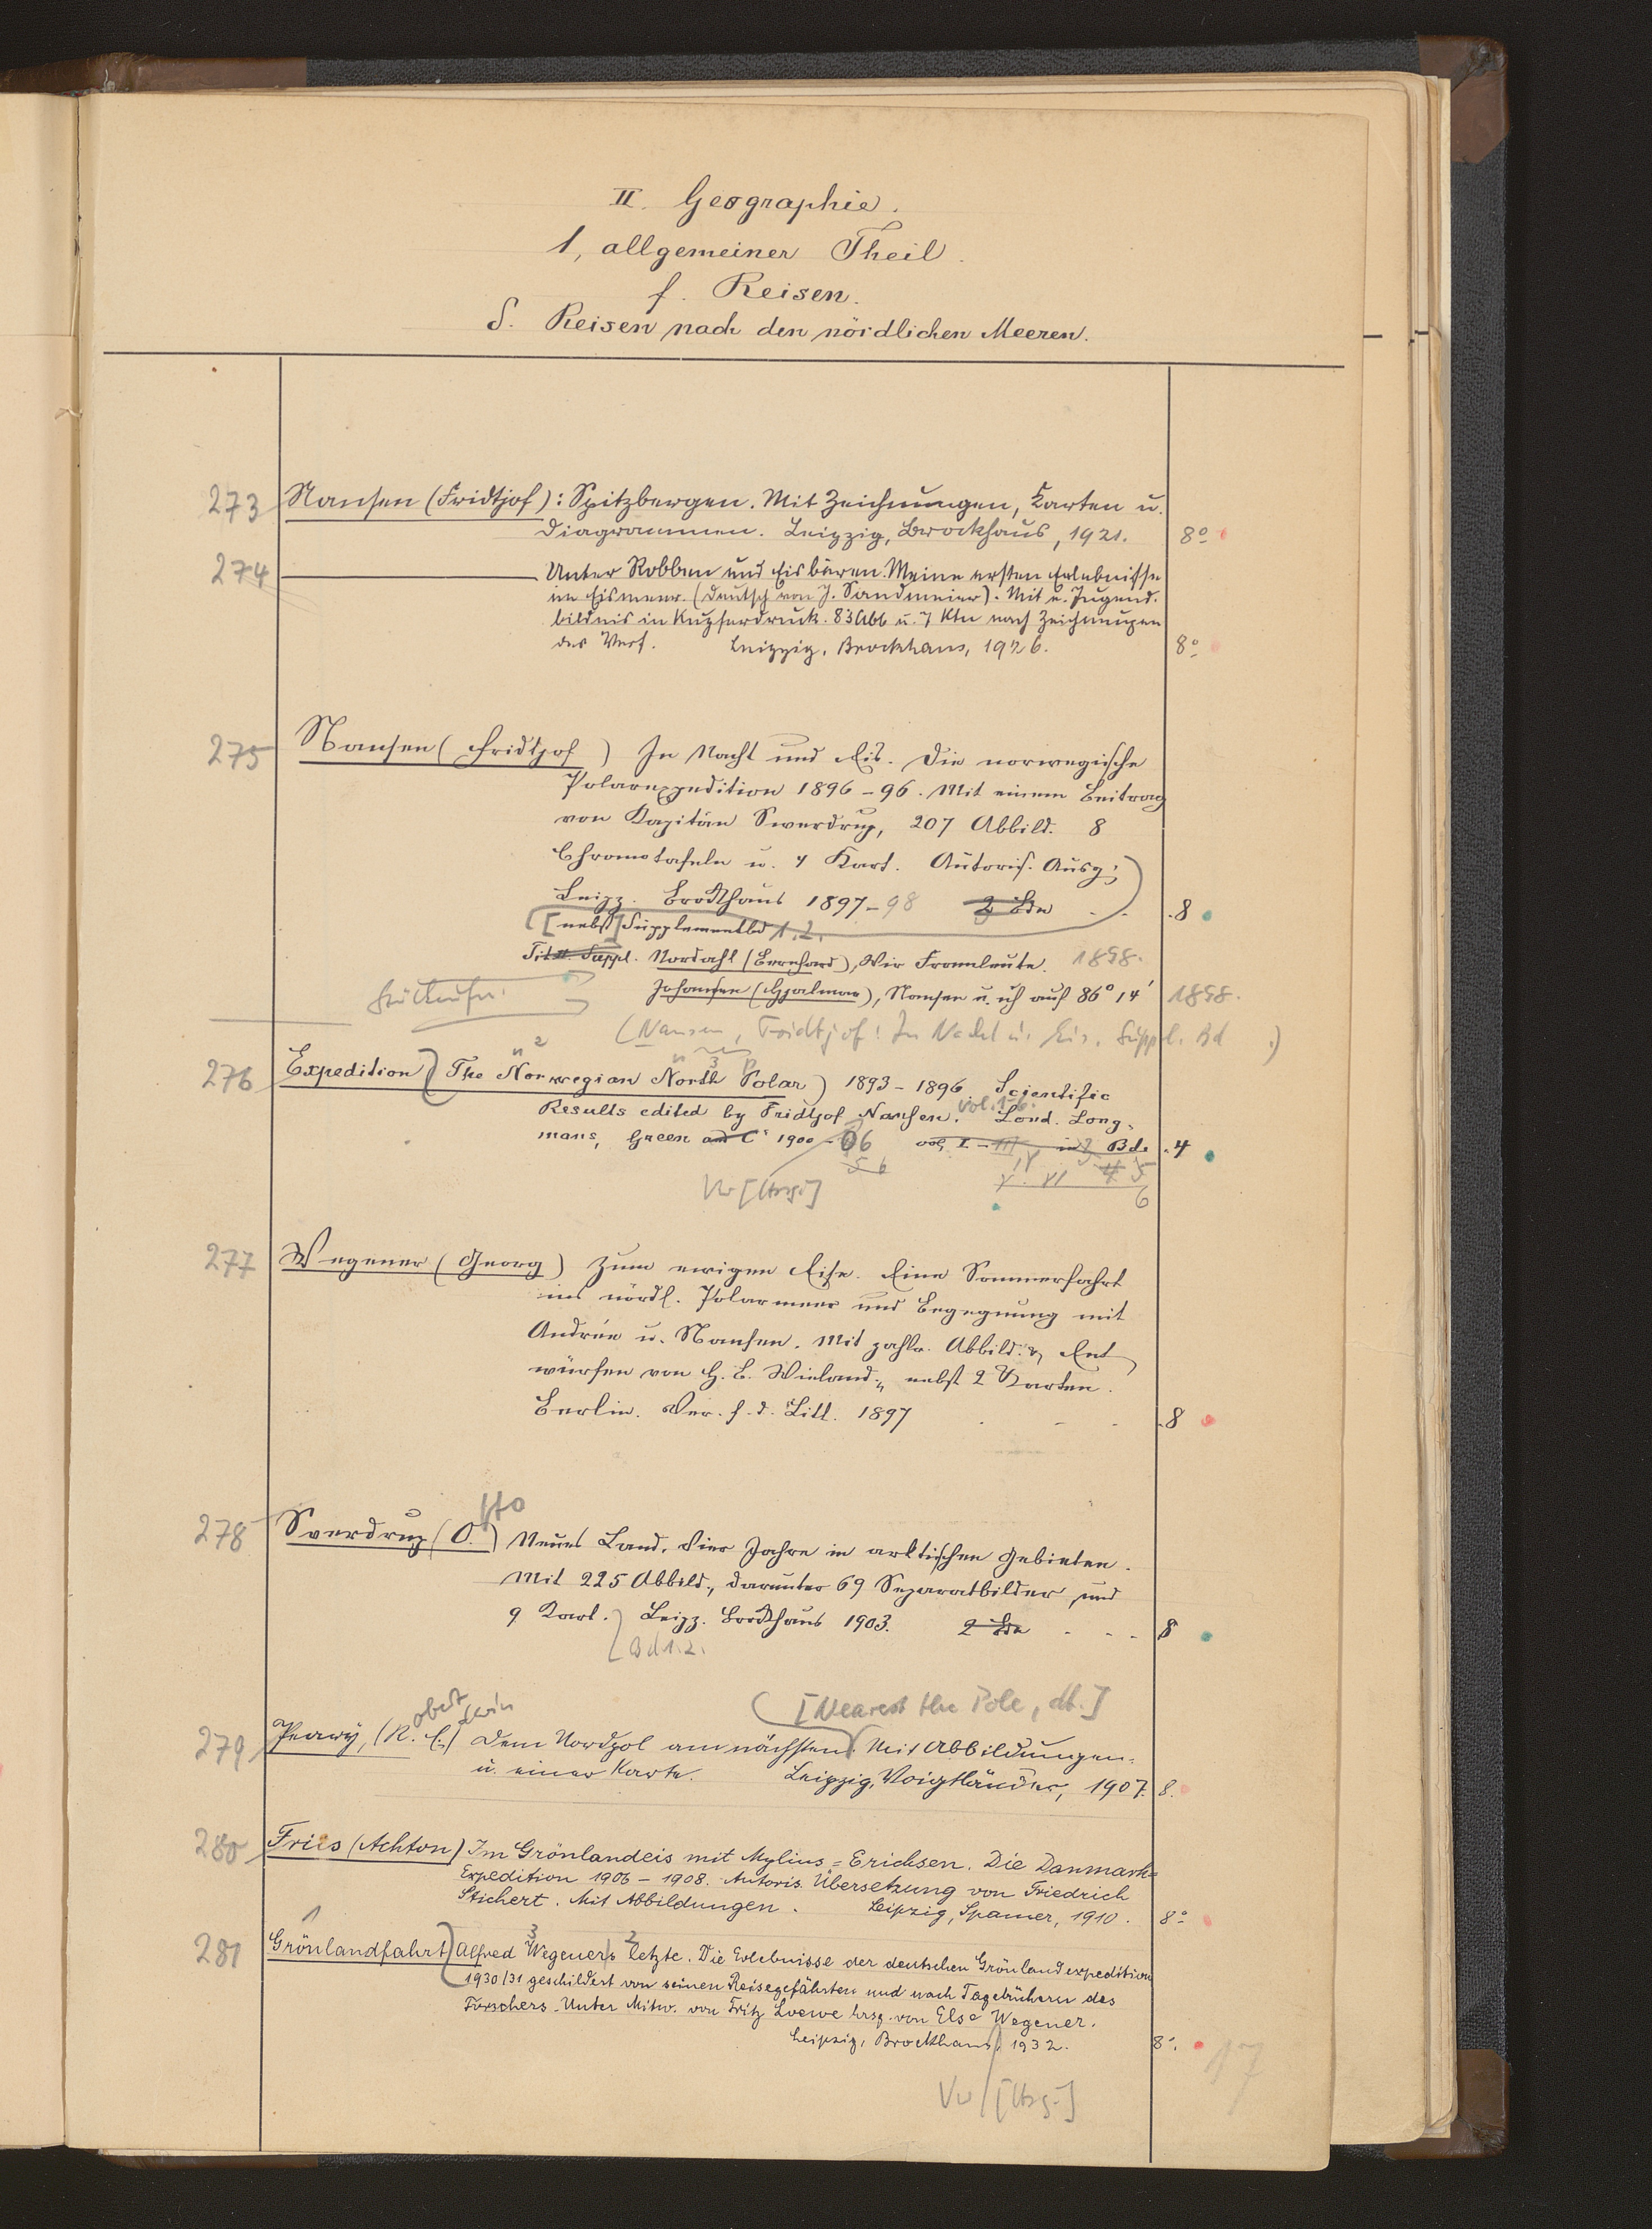 II. Geographie.
1, allgemeiner Theil.
f. Reisen.
δ. Reisen nach den nördlichen Meeren.
273 Nansen (Fridtjof): Spitzbergen. Mit Zeichnungen, Karten u.
Diagrammen. Leipzig, Brockhaus, 1921. 8°
274 ——— Unter Robben und Eisbären. Meine ersten Erlebnisse
im Eismeer. (Deutsch von J. Sandmeier). Mit e. Jugend-
bildnis in Kupferdruck. 83 Abb u. 7 Ktn nach Zeichnungen
des Verf. Leipzig, Brockhaus, 1926. 8°
275 Nansen (Fridtjof) In Nacht und Eis. Die norwegische
Polarexpedition 1896-96. Mit einem Beitrag
von Kapitän Swerdrup, 207 Abbild. 8
Chromotafeln u. 4 Kart. Autoris. Ausg;
Leipz. Brockhaus 1897-98 2 Bde . . . 8
[nebst] Supplementbd 1.2.
Titel Suppl. Nordahl (Bernhard), Wir Framleute. 1898.
Johansen (Hjalmar), Nansen u. ich auf 86° 14' 1898.
(Nansen, Fridtjof: In Nacht u. Eis, Suppl. Bd .)
276 Expedition (The Norwegian North Polar) 1893-1896. Scientific
Results edited by Fridtjof Nansen. vol. 1-6. Lond. Long-
mans, Green and C° 1900-06 vol. I-III in 3 Bde . 4
56 IV 4 5
V. VI 6
Vw [Hrsg.]
277 Wegener (Georg) Zum ewigen Eise. Eine Sommerfahrt
ins nördl. Polarmeer und Begegnung mit
Andrée u. Nansen. Mit zahlr. Abbild. & Ent
würfen von H. B. Wieland, nebst 2 Karten.
Berlin. Ver. f. d. Litt. 1897 . - . . 8
278 Sverdrup (O.tto) Neues Land. Vier Jahre in arktischen Gebieten.
Mit 225 Abbild., darunter 69 Separatbilder und
9 Kart. Leipz. Brockhaus 1903. 2 Bde . . . 8
Bd 1.2.
[Nearest the Pole, dt.]
279 Peary, (R.obert E.dwin) Dem Nordpol am nächsten. Mit Abbildungen
u. einer Karte. Leipzig, Voigtländer, 1907. 8.
280 Friis (Achton) Im Grönlandeis mit Mylius=Erichsen. Die Danmark=
Expedition 1906-1908. Autoris. Übersetzung von Friedrich
Stichert. Mit Abbildungen. Leipzig, Spamer, 1910. 8°
1 3 2
281 Grönlandfahrt) Alfred Wegeners letzte. Die Erlebnisse der deutschen Grönlandexpedition
1930/31 geschildert von seinen Reisegefährten und nach Tagebüchern des
Forschers. Unter Mitw. von Fritz Loewe hrsg. von Else Wegener.
Leipzig, Brockhaus, 1932. 8°.
Vw [Hrsg.]
17